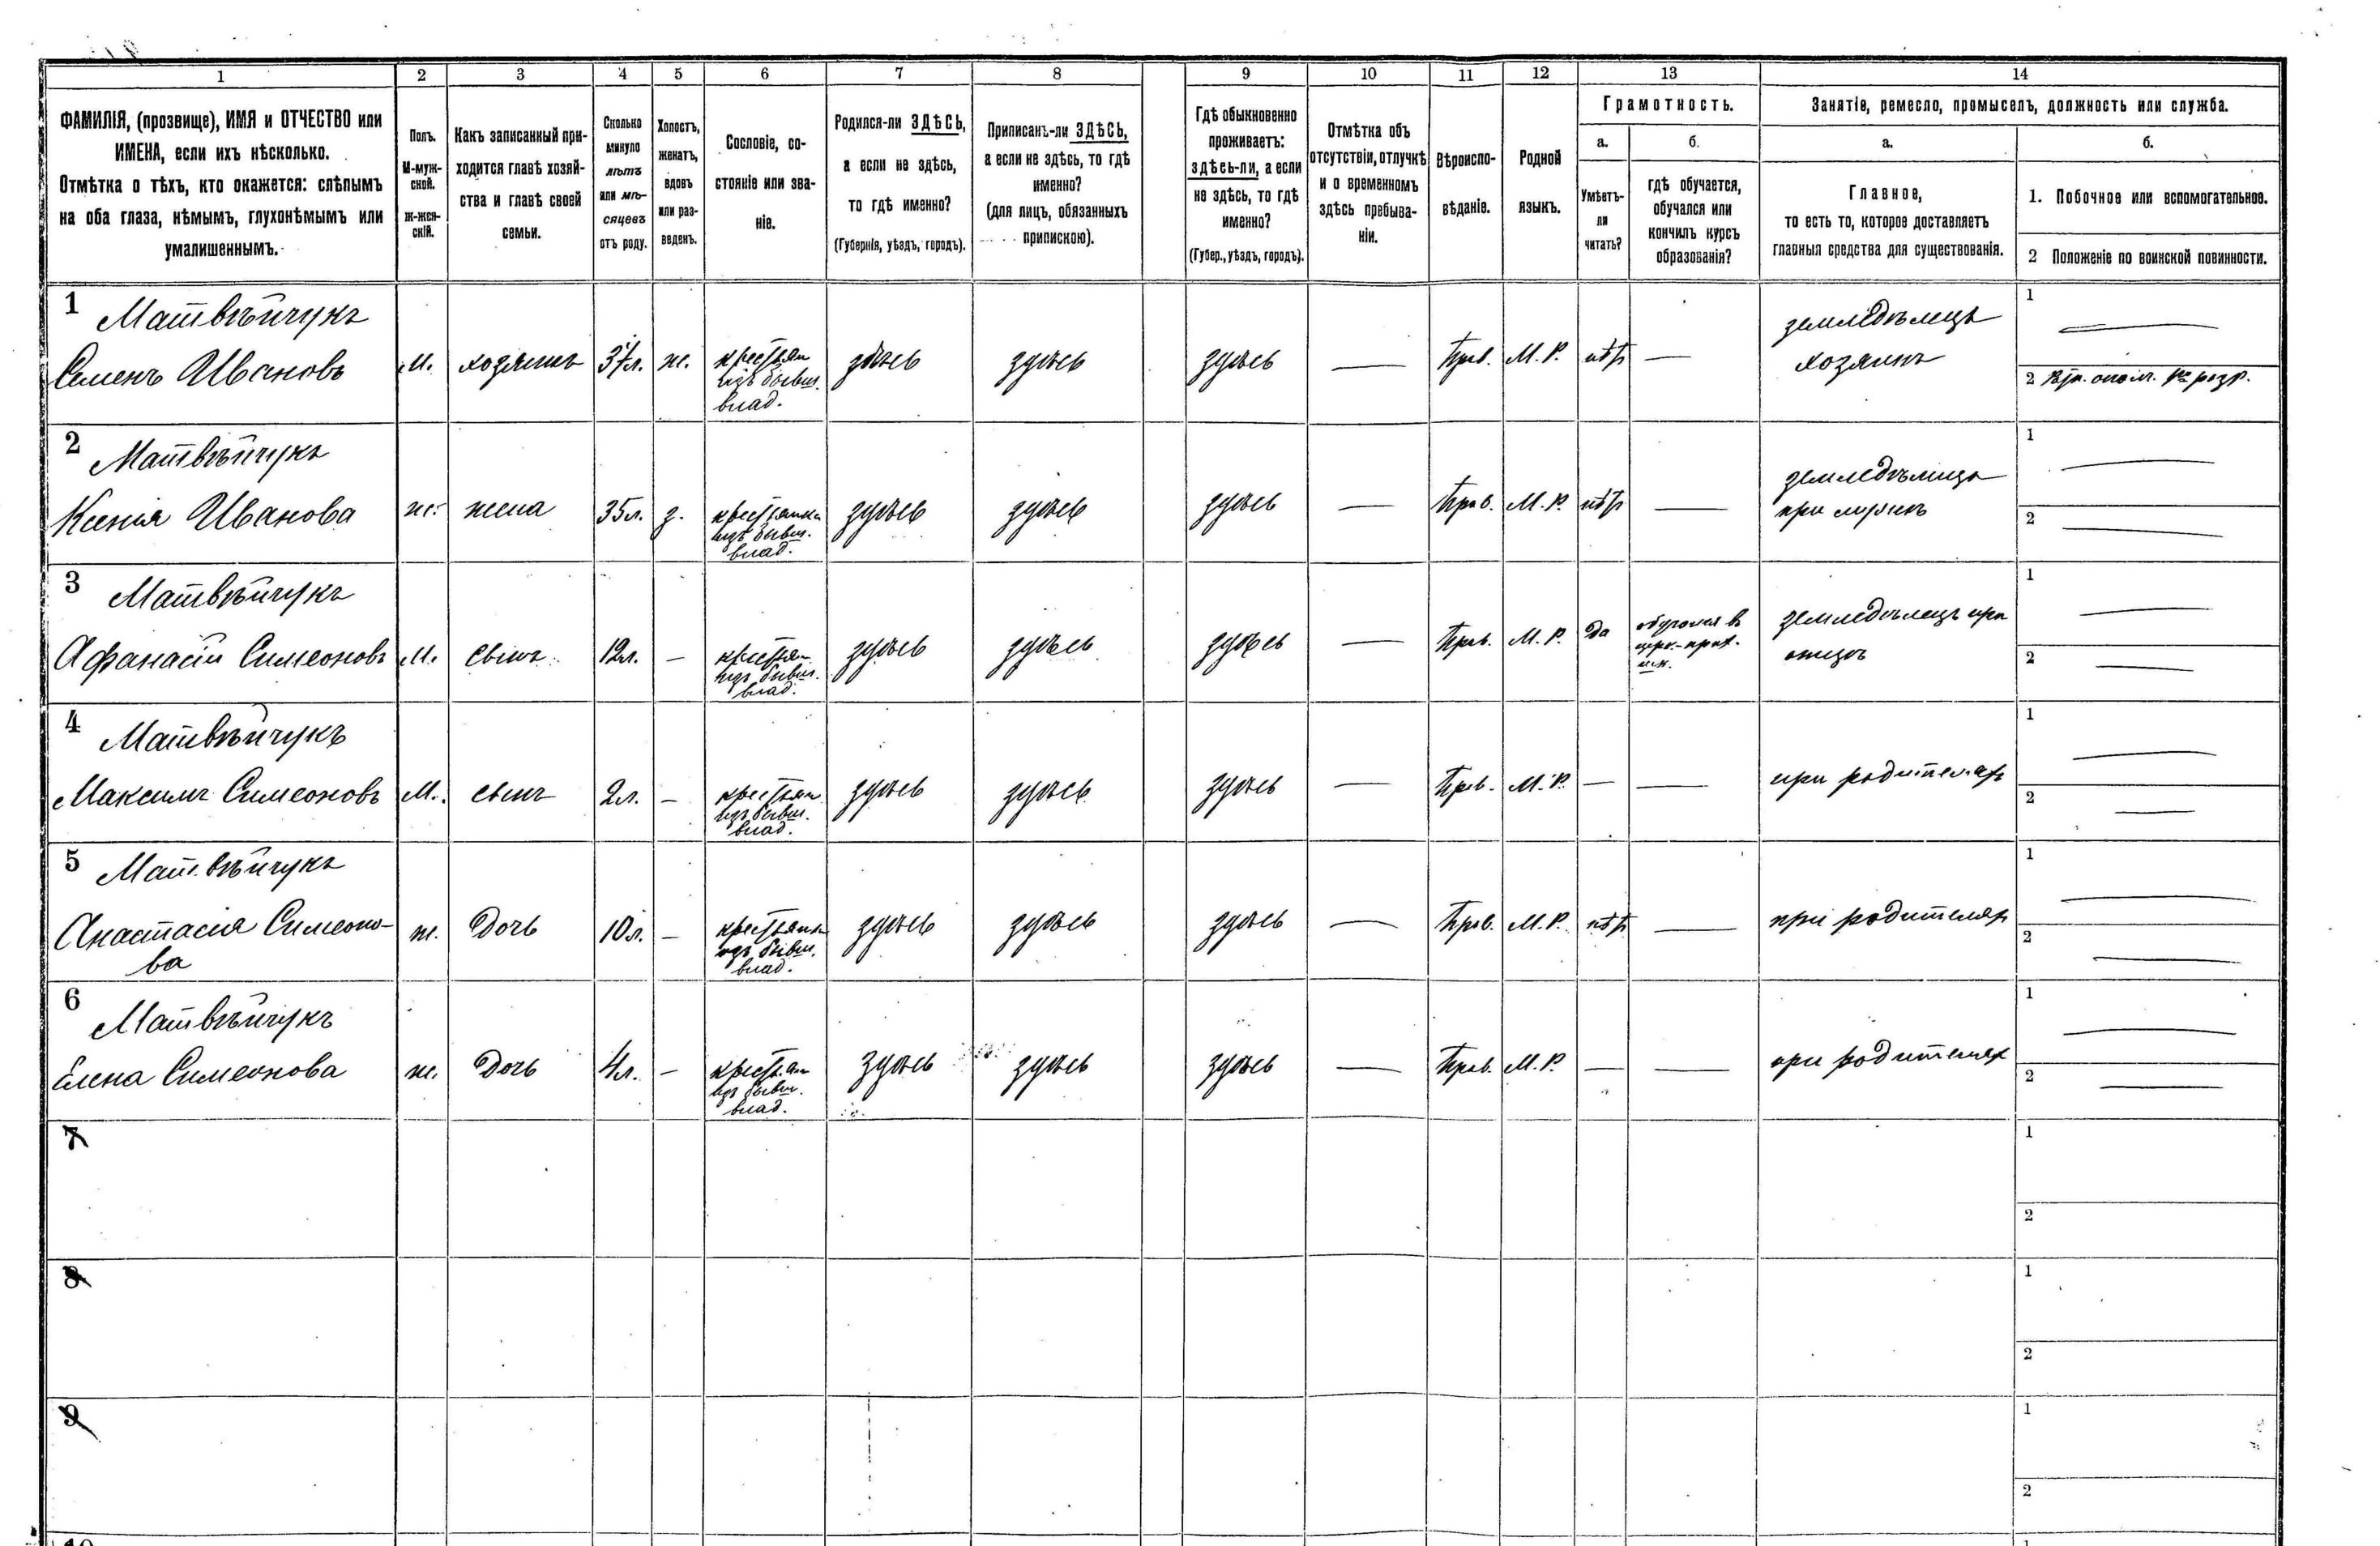 1 2 3 4 5 6 7 8 9 10 11 12 13 14
ФАМИЛІЯ, (прозвище), ИМЯ и ОТЧЕСТВО или
ИМЕНА, если ихъ нѣсколько.
Отмѣтка о тѣхъ, кто окажется: слѣпымъ
на оба глаза, нѣмымъ, глухонѣмымъ или
умалишеннымъ.
Полъ.
М-муж-
ской.
ж-жен-
скій.
Какъ записанный при-
ходится главѣ хозяй-
ства и главѣ своей
семьи.
Сколько
минуло
лѣтъ
или мѣ-
сяцевъ
отъ роду.
Холостъ,
женатъ,
вдовъ
или раз-
веденъ.
Сословіе, со-
стояніе или зва-
ніе.
Родился-ли ЗДѢСЬ,
а если не здѣсь,
то гдѣ именно?
(Губернія, уѣздъ, городъ).
Приписанъ-ли ЗДѢСЬ,
а если не здѣсь, то гдѣ
именно?
(для лицъ, обязанныхъ
припискою).
Гдѣ обыкновенно
проживаетъ:
здѣсь-ли, а если
не здѣсь, то гдѣ
именно?
(Губер., уѣздъ, городъ).
Отмѣтка объ
отсутствіи, отлучкѣ
и о временномъ
здѣсь пребыва-
ніи.
Вѣроиспо-
вѣданіе.
Родной
языкъ.
Грамотность.
а.
Умѣетъ-
ли
читать?
б.
гдѣ обучается,
обучался или
кончилъ курсъ
образованія?
Занятіе, ремесло, промыселъ, должность или служба.
а.
Главное,
то есть то, которое доставляетъ
главныя средства для существованія.
б.
1. Побочное или вспомогательное.
2 Положеніе по воинской повинности.
1 Матвѣйчукъ
Семенъ Ивановъ
М.
хозяинъ
37л.
ж.
крестьян
изъ бывш.
влад.
здѣсь
здѣсь
здѣсь
—
Прав.
М. Р.
нѣт
—
земледѣлецъ
хозяинъ
1 —
2 опол. разр.
2 Матвѣйчукъ
Ксенія Иванова
ж.
жена
35л.
з.
крестьянка
изъ бывш.
влад.
здѣсь
здѣсь
здѣсь
—
Прав.
М. Р.
нѣт
—
земледѣлица
при мужѣ
1 —
2 —
3 Матвѣйчукъ
Афанасій Симеоновъ
М.
сынъ
12л.
—
крестьян
изъ бывш.
влад.
здѣсь
здѣсь
здѣсь
—
Прав.
М. Р.
да
обучался в
церк.-прих.
шк.
земледѣлецъ при
отцѣ
1 —
2 —
4 Матвѣйчукъ
Максимъ Симеоновъ
М.
сынъ
2л.
—
крестьян
изъ бывш.
влад.
здѣсь
здѣсь
здѣсь
—
Прав.
М. Р.
—
—
при родителях
1 —
2 —
5 Матвѣйчукъ
Анастасія Симеоно-
ва
ж.
Дочь
10л.
—
крестьянк
изъ бывш.
влад.
здѣсь
здѣсь
здѣсь
—
Прав.
М. Р.
нѣт
—
при родителях
1 —
2 —
6 Матвѣйчукъ
Елена Симеонова
ж.
Дочь
4л.
—
крестьян
изъ бывш.
влад.
здѣсь
здѣсь
здѣсь
—
Прав.
М. Р.
—
—
при родителях
1 —
2 —
7
1
2
8
1
2
9
1
2